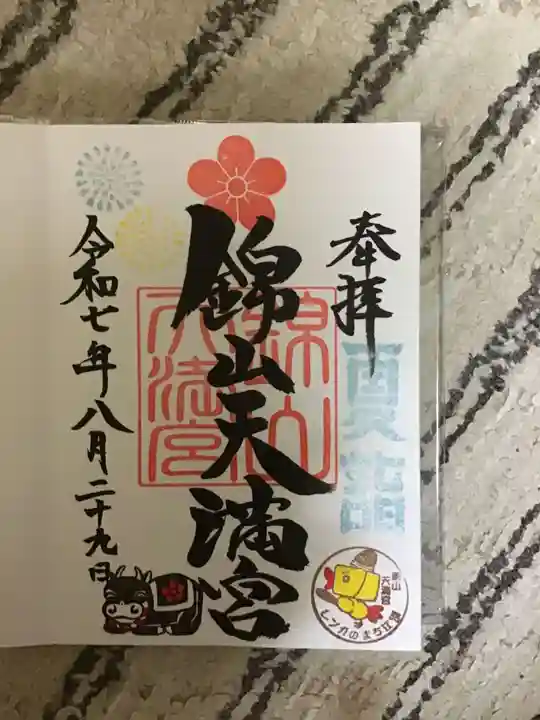 奉拝
夏詣
錦山天満宮
錦山天満宮
令和七年八月二十九日
錦山天満宮
レンガのまち江別